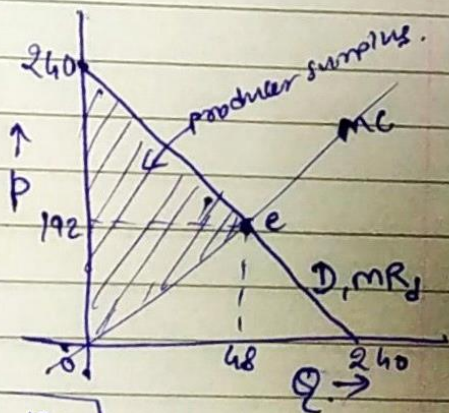 producer surplus.
240
MC
↑
P
192
e
D, MRd
0
48
240
Q →